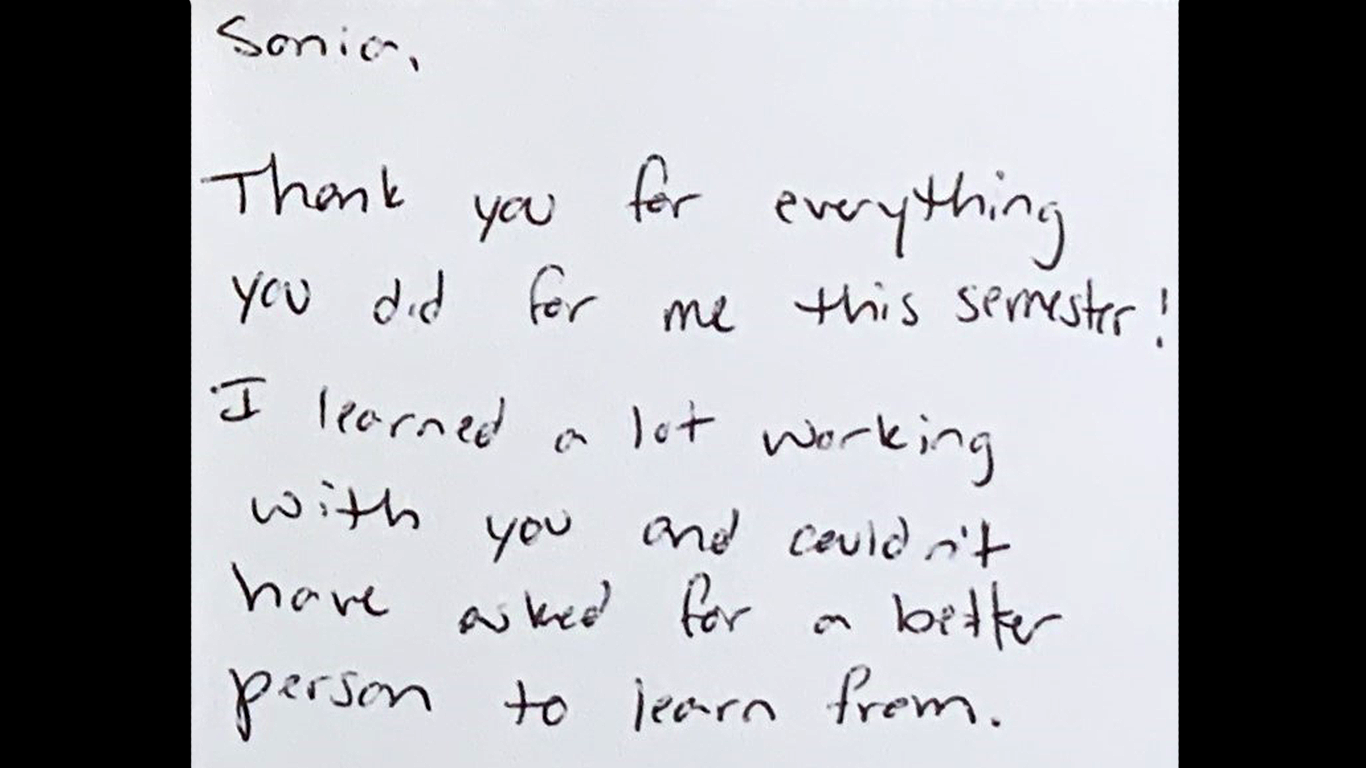 Sonia,
Thank you for everything
you did for me this semester!
I learned a lot working
with you and couldn't
have asked for a better
person to learn from.